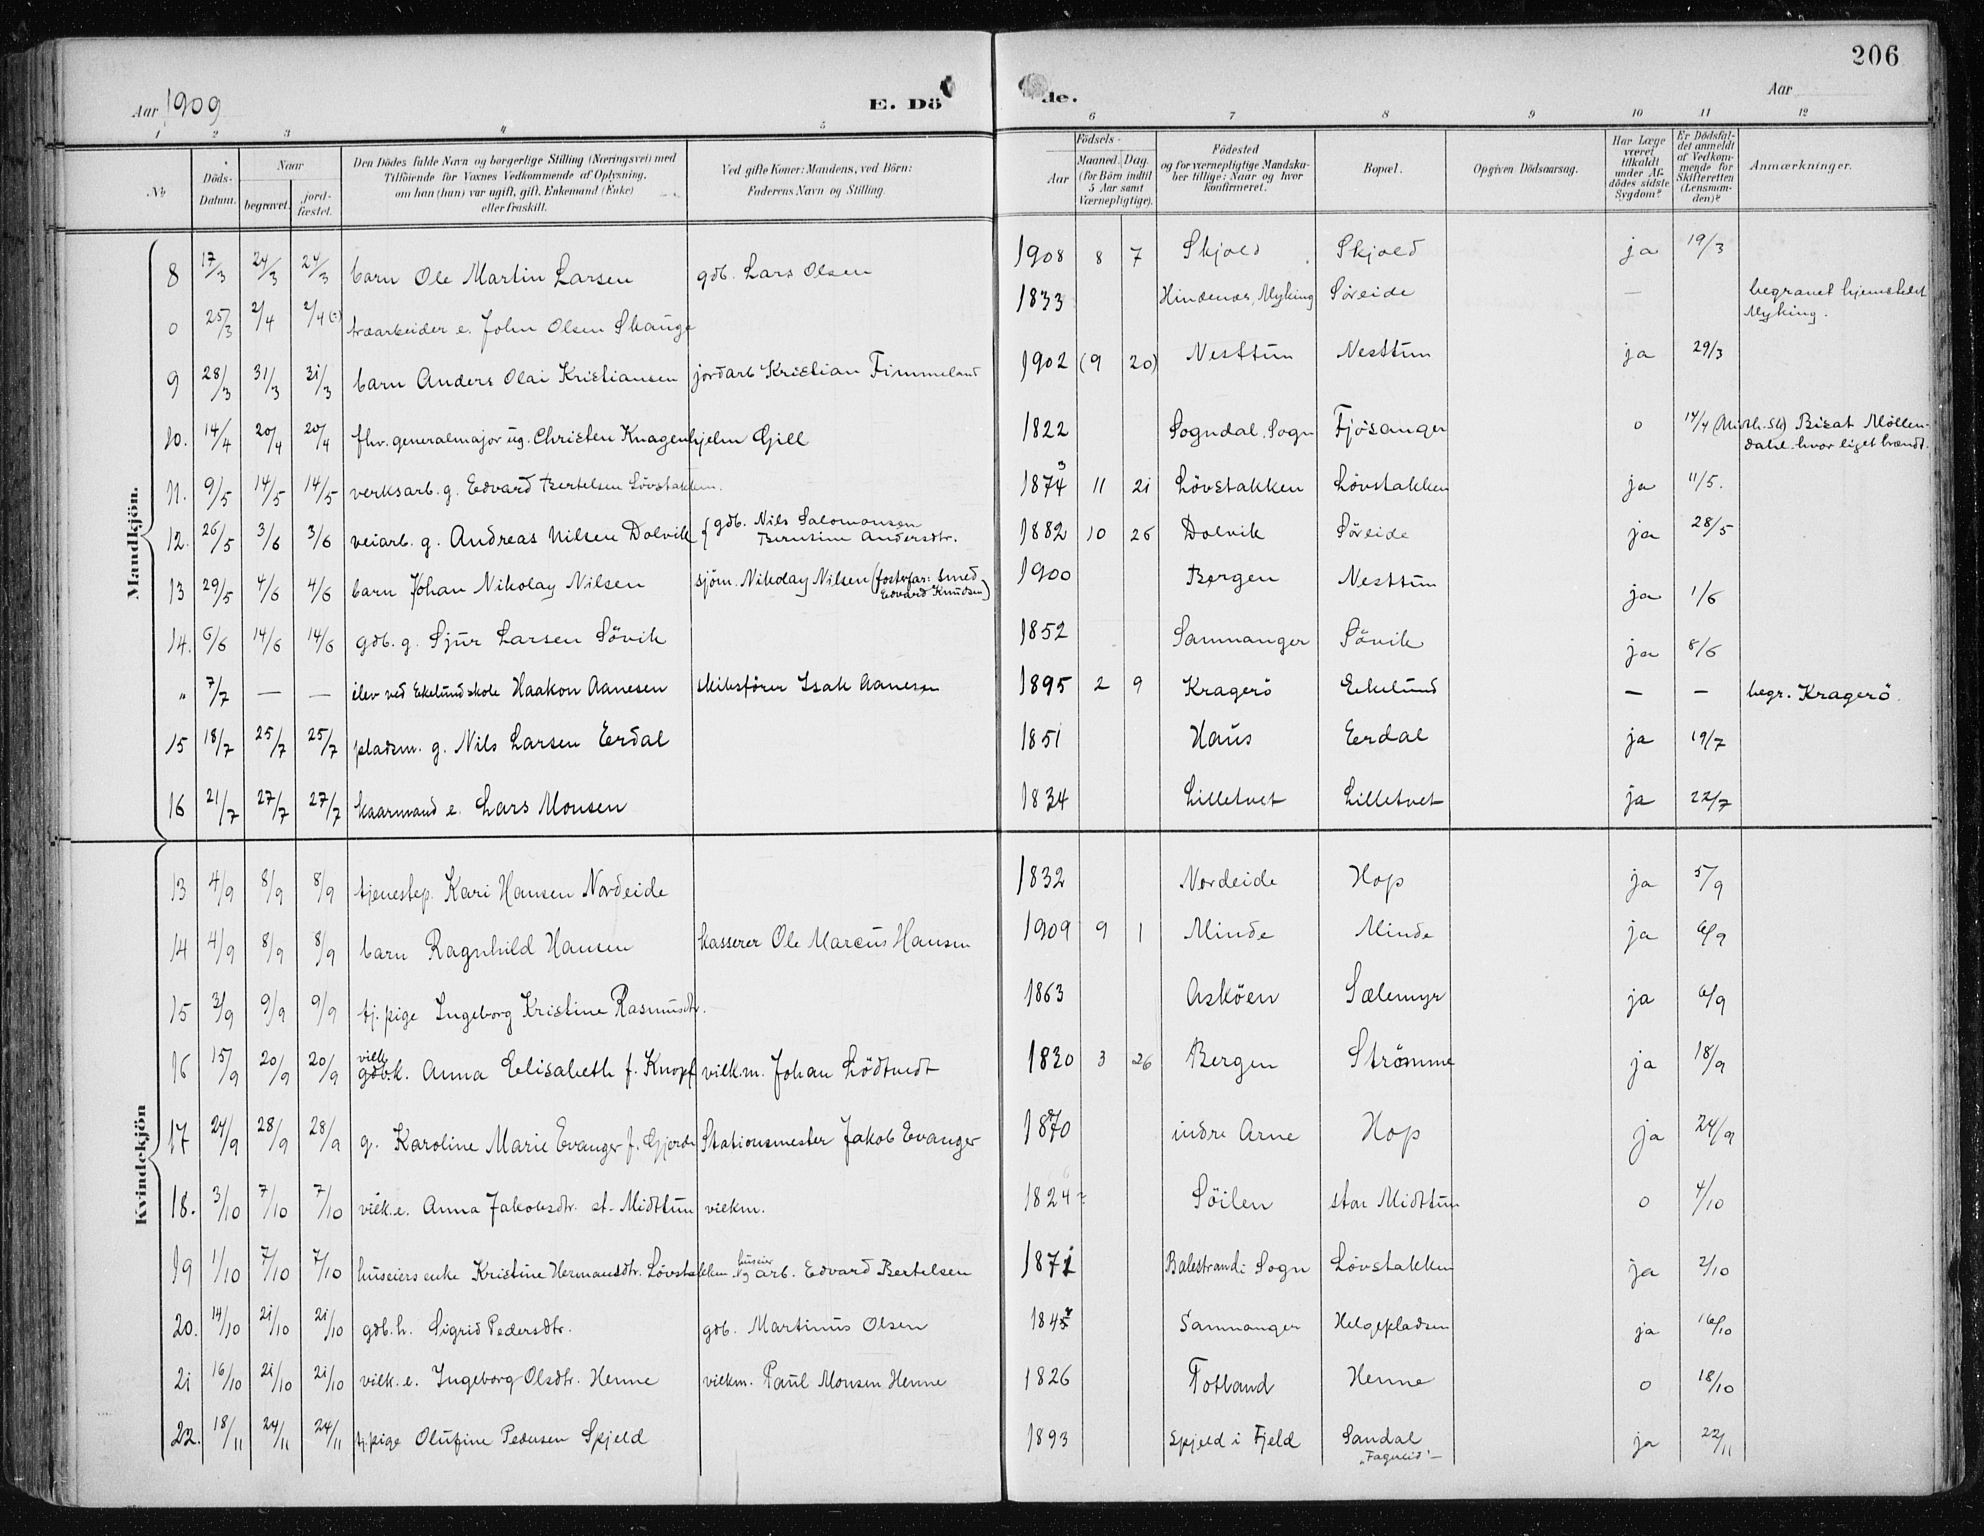 206
Aar 1909
E. Dö de.
Aar
1 2 3 4 5 6 7 8 9 10 11 12
No
Döds-Datum.
Naar
begravet.
jord-fæstet.
Den Dödes fulde Navn og borgerlige Stilling (Næringsvei) med
Tilföiende for Voxnes Vedkommende af Oplysning,
om han (hun) var ugift, gift, Enkemand (Enke)
eller fraskilt.
Ved gifte Koner: Mandens, ved Börn:
Faderens Navn og Stilling.
Födsels-
Aar
Maaned. Dag.
(for Börn indtil
5 Aar samt
Værnepligtige).
Födested
og for værnepligtige Mandska-
ber tillige: Naar og hvor
konfirmeret.
Bopæl.
Opgiven Dödsaarsag.
Har Læge
været
tilkaldt
under Af-
dödes sidste
Sygdom?
Er Dödsfal-
det anmeldt
af Vedkom-
mende for
Skifteretten
(Lensman-
den)?
Anmærkninger.
Mandkjön.
8 17/3 24/3 24/3 barn Ole Martin Larsen gdb. Lars Olsen 1908 8 7 Skjold Skjold ja 19/3
0 25/3 2/4 2/4 træarbeider e. John Olsen Skauge 1833 Hindenes, Myking Söreide — begravet hjemstedet
Myking.
9 28/3 31/3 31/3 barn Anders Olai Kristiansen jordarb Kristian Fimmeland 1902 (9 20) Nesttun Nesttun ja 29/3
10. 14/4 20/4 20/4 fhv. generalmajor ug. Christen Knagenhjelm Gjell 1822 Sogndal, Sogn Fjösanger 0 17/4 Bisat Möllen-
dahl hvor liget brændt.
11. 9/5 14/5 14/5 verksarb. g. Edvard Bertelsen Lövstakken. 1874 3 11 21 Lövstakken Lövstakken ja 11/5.
12. 26/5 3/6 3/6 veiarb. g. Andreas Nilsen Dolvik { gdb. Nils Salomonsen
Berntine Andersdtr. 1882 10 26 Dolvik Söreide ja 28/5
13 29/5 4/6 4/6 barn Johan Nikolay Nilsen sjöm. Nikolay Nilsen (fosterfar: smed
Edvard Knudsen) 1900 Bergen Nesttun ja 1/6
14. 6/6 14/6 14/6 gdb. g. Sjur Larsen Sövik 1852 Samnanger Sövik ja 8/6
" 7/7 — — elev ved Ekelund skole Haakon Aanesen skibsförer Isak Aanesen 1895 2 9 Kragerö Eekelund — — begr. Kragerö.
15 18/7 25/7 25/7 pladsm. g. Nils Larsen Erdal 1851 Haus Eerdal ja 19/7
16 21/7 27/7 27/7 kaarmand e. Lars Monsen 1834 Lilletvet Lilletvet ja 22/7
Kvindekjön
13 4/9 8/9 8/9 tjenestep. Kari Hansen Nordeide 1832 Nordeide Hop ja 5/9
14 4/9 8/9 8/9 barn Ragnhild Hansen kasserer Ole Marcus Hansen 1909 9 1 Minde Minde ja 6/9
15 3/9 9/9 9/9 tj. pige Ingeborg Kristine Rasmusdtr. 1863 Asköen Sælemyr ja 6/9
16 15/9 20/9 20/9 vilk. gdb.k. Anna Elisabeth f. Knopf vilkm. Johan Lödtvedt 1830 3 26 Bergen Strömme ja 18/9
17 24/9 28/9 28/9 g. Karoline Marie Evanger f. Gjerde Stationsmester Jakob Evanger 1870 indre Arne Hop ja 24/9
18. 3/10 7/10 7/10 vilk.e. Anna Jakobsdtr. st. Midttun vilkm. 1824 Söilen stor Midttun 0 4/10
19 1/10 7/10 7/10 huseiers enke Kristine Hermansdtr. Lövstakken huseier og arb. Edvard Bertelsen 1871 Balestrand i Sogn Lövstakken ja 2/10
20. 14/10 21/10 21/10 gdb. h. Sigrid Pedersdtr. gdb. Martinus Olsen 1845 Samnanger Helgepladsen ja 16/10
21 16/10 21/10 21/10 vilk. e. Ingeborg Olsdtr. Henne vilkm. Paul Monsen Henne 1826 Totland Henne 0 18/10
22. 18/11 24/11 24/11 tj. pige Olufine Pedersen Spjeld 1893 Spjeld i Fjeld Sandal
"Fagerlid" ja 22/11